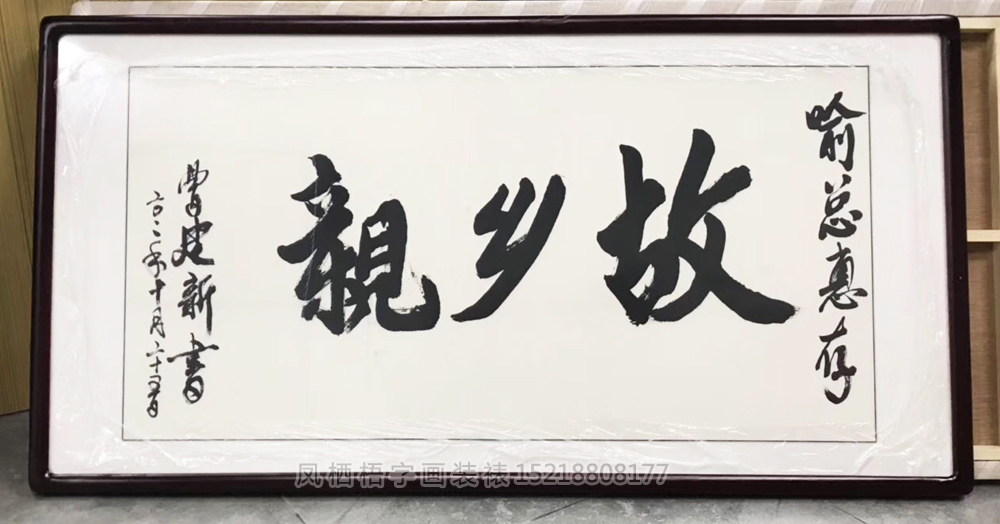 喻总惠存
故乡親
曹建新書
二〇二一年十月二十五日
凤栖梧字画装裱 15218808177